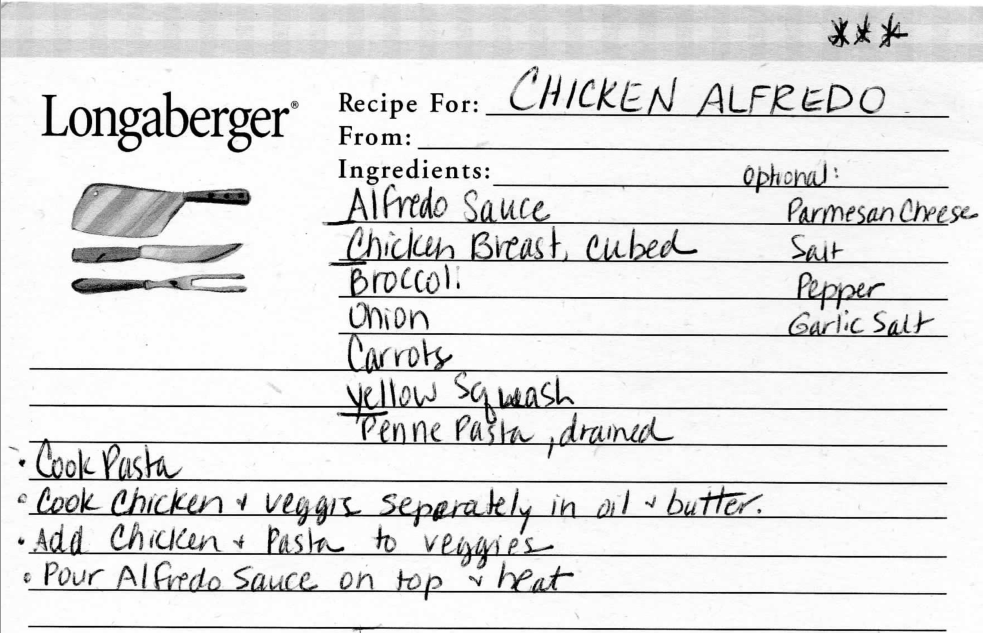 ***
Longaberger®
Recipe For: CHICKEN ALFREDO
From:
Ingredients:
Alfredo Sauce
Chicken Breast, cubed
Broccoli
Onion
Carrots
yellow Squash
Penne Pasta, drained
Optional:
Parmesan Cheese
Salt
Pepper
Garlic Salt
• Cook Pasta
• Cook Chicken & veggis separately in oil & butter.
• Add Chicken & Pasta to veggies
• Pour Alfredo Sauce on top & heat